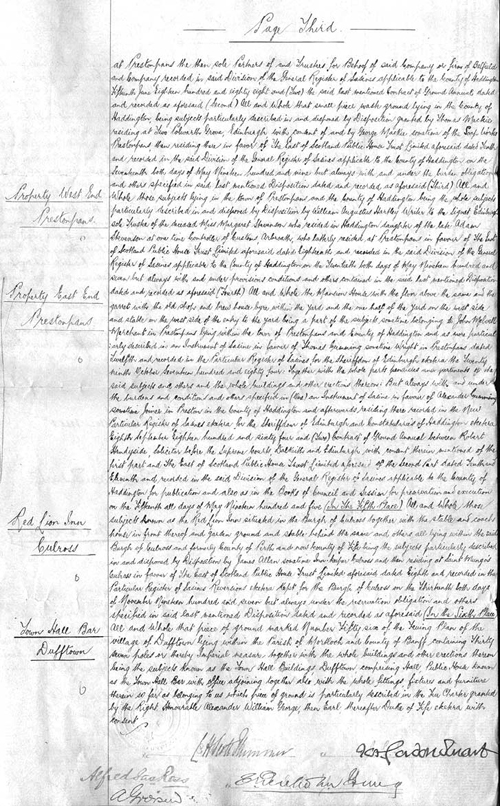 Page Third.
at Prestonpans the then sole Partners of and Trustees for Behoof of said Company or firm of Belfield
and Company recorded in said Division of the General Register of Sasines applicable to the County of Haddington
Fifteenth June Eighteen hundred and eighty eight and (Two) the said last mentioned Contract of Ground Annual dated
and recorded as aforesaid (Second) All and Whole that small piece waste ground lying in the County of
Haddington, being subjects particularly described in and disponed by Disposition granted by Thomas Mackie
residing at Polwarth Grove, Edinburgh with consent of and by George Mackie sometime of the Soap Works
Prestonpans then residing there in favor of The East of Scotland Public House Trust Limited aforesaid dated
and recorded in the said Division of the General Register of Sasines applicable to the County of Haddington on the
Seventeenth both days of May Nineteen hundred and nine but always with and under the burdens obligations
and others specified in said last mentioned Disposition dated and recorded as aforesaid (Third) All and
Whole those subjects lying in the town of Prestonpans and the County of Haddington being the whole subjects
particularly described in and disponed by Disposition by William Augustus Writer to the Signet Edinburgh
sole Trustee of the deceased Miss Margaret Stevenson who resided in Haddington daughter of the late Adam
Stevenson at one time Comptroller of Customs Arbroath, who latterly resided at Prestonpans in favour of The East
of Scotland Public House Trust Limited aforesaid dated Eighteenth and recorded in the said Division of the General
Register of Sasines applicable to the County of Haddington on the Twentieth both days of May Nineteen hundred and
seven but always with and under provisions conditions and others contained in the said last mentioned Disposition
dated and recorded as aforesaid (Fourth) All and Whole the Mansion House with the floor above the same and the
garret with the old shops and three houses byre within the yard and the one half of the yard on the west side
and stable on the west side of the entry to the yard being a part of the subjects sometime belonging to John
Merchant in Prestonpans lying within the town of Prestonpans and County of Haddington and as more particu-
larly described in an Instrument of Sasine in favor of Thomas Cumming sometime Wright in Prestonpans dated
Twelfth and recorded in the Particular Register of Sasines for the Sheriffdom of Edinburgh etcetera the Twenty
ninth October Seventeen hundred and eighty four Together with the whole parts privileges and pertinents of the
said subjects and others and the whole buildings and other erections thereon But always with and under
the burdens and conditions and others specified in (One) an Instrument of Sasine in favor of Alexander Cumming
sometime Joiner in Preston in the County of Haddington and afterwards residing there recorded in the New
Particular Register of Sasines etcetera for the Sheriffdom of Edinburgh and Constabularies of Haddington etcetera
Eighth September Eighteen hundred and sixty four and (Two) Contract of Ground Annual between Robert
Handyside, Solicitor before the Supreme Courts Dalkeith and Edinburgh, with consent therein mentioned of the
first part and The East of Scotland Public House Trust Limited aforesaid of the Second Part dated Thirteenth
Eleventh and recorded in the said Division of the General Register of Sasines applicable to the County of
Haddington for publication and also in the Books of Council and Session for preservation and execution
on the Fifteenth all days of May Nineteen hundred and five (In the Fifth Place) All and Whole those
subjects known as the Red Lion Inn situated in the Burgh of Culross together with the stable and coach
house in front thereof and garden ground and stable behind the same and others all lying within the said
Burgh of Culross and formerly County of Perth and now County of Fife being the subjects particularly described
in and disponed by Disposition by James Allen sometime Innkeeper Culross and then residing at
Culross in favor of The East of Scotland Public House Trust Limited aforesaid dated Eighth and recorded in the
Particular Register of Sasines Reversions etcetera kept for the Burgh of Culross on the Thirteenth both days
of November Nineteen hundred and seven but always under the reservation obligation and others
specified in said last mentioned Disposition dated and recorded as aforesaid (In the Sixth Place)
All and Whole that piece of ground marked Number Fifty six of the Feuing Plan of the
village of Dufftown lying within the Parish of Mortlach and County of Banff containing Thirty
seven poles or thereby Imperial measure together with the whole buildings and other erections thereon
being the subjects known as the Town Hall Buildings Dufftown comprising Hall, Public House known
as the Town Hall Bar with offices adjoining together also with the whole fittings fixtures and furniture
therein so far as belonging to us which piece of ground is particularly described in the Feu Charter granted
by the Right Honourable Alexander William George, then Earl thereafter Duke of Fife etcetera with
consent
Property West End
Prestonpans.
Property East End
Prestonpans
Red Lion Inn
Culross
Town Hall Bar
Dufftown